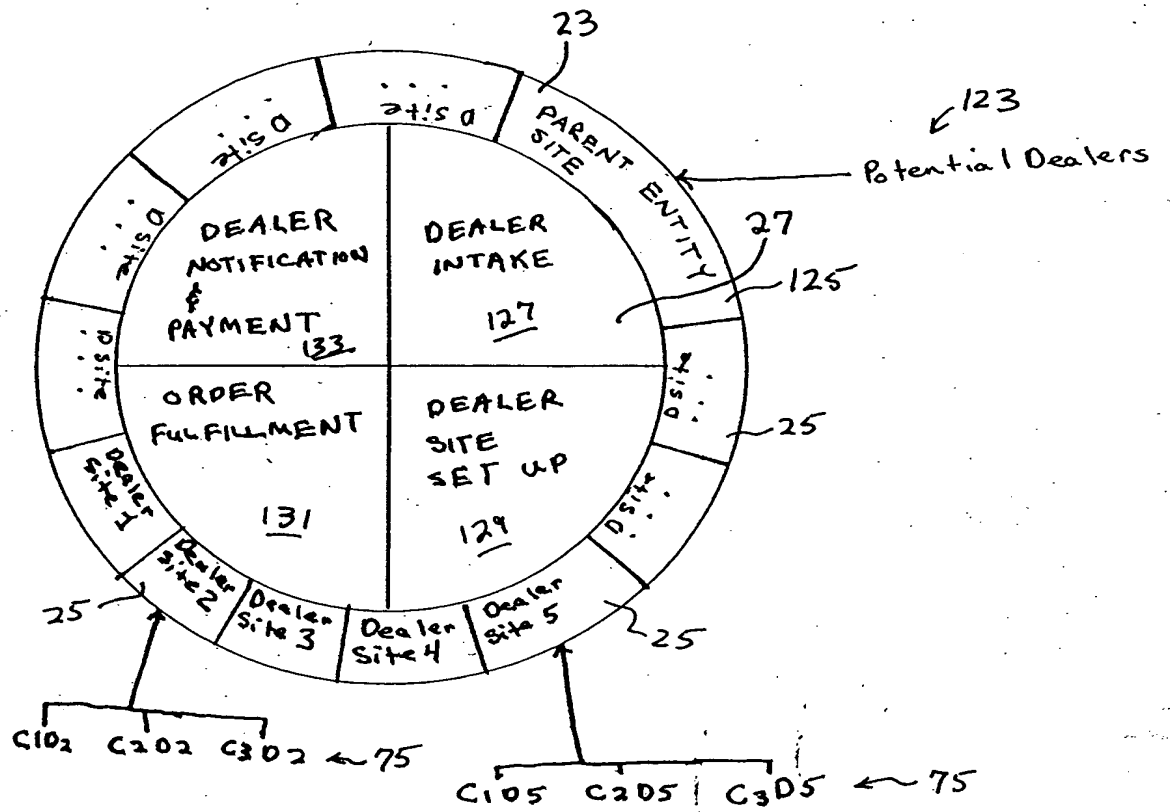 23
123
Potential Dealers
PARENT ENTITY
SITE
D site
...
D site
...
D site
...
D site
...
27
125
DEALER
NOTIFICATION
&
PAYMENT
133
DEALER
INTAKE
127
ORDER
FULFILLMENT
131
DEALER
SITE
SET UP
129
D site
...
25
D site
...
Dealer
Site 1
Dealer
Site 2
Dealer
Site 3
Dealer
Site 4
Dealer
Site 5
25
25
C1D2 C2D2 C3D2 75
C1D5 C2D5 C3D5 75